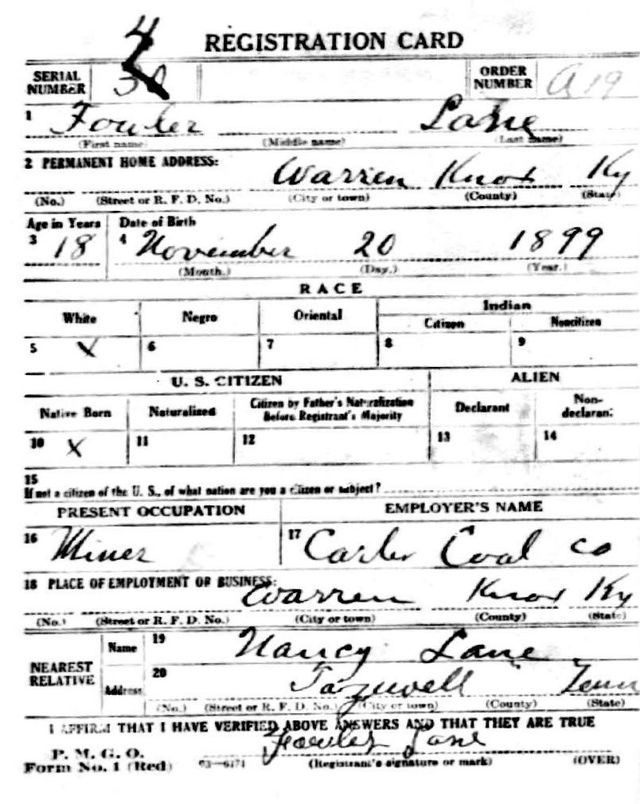 4
REGISTRATION CARD
SERIAL NUMBER ORDER NUMBER A 19
1 Fowler Lane
(First name) (Middle name) (Last name)
2 PERMANENT HOME ADDRESS: Warren Knox Ky
(No.) (Street or R. F. D. No.) (City or town) (County) (State)
Age in Years Date of Birth
3 18 4 November 20 1899
(Month.) (Day.) (Year.)
RACE
White Negro Oriental Indian
Citizen Noncitizen
5 X 6 7 8 9
U. S. CITIZEN ALIEN
Native Born Naturalized Citizen by Father's Naturalization Before Registrant's Majority Declarant Non-declarant
10 X 11 12 13 14
15
If not a citizen of the U. S., of what nation are you a citizen or subject?
PRESENT OCCUPATION EMPLOYER'S NAME
16 Miner 17 Carter Coal Co
18 PLACE OF EMPLOYMENT OR BUSINESS: Warren Knox Ky
(No.) (Street or R. F. D. No.) (City or town) (County) (State)
NEAREST RELATIVE Name 19 Nancy Lane
Address 20 Tazwell Tenn
(No.) (Street or R. F. D. No.) (City or town) (County) (State)
I AFFIRM THAT I HAVE VERIFIED ABOVE ANSWERS AND THAT THEY ARE TRUE
Fowler Lane
P. M. G. O.
Form No. 1 (Red) 03-6171 (Registrant's signature or mark) (OVER)